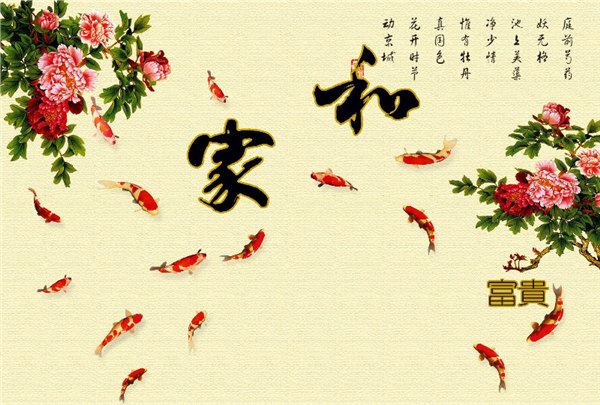 庭前芍药
妖无格
池上芙蕖
净少情
惟有牡丹
真国色
花开时节
动京城
和
家
富貴